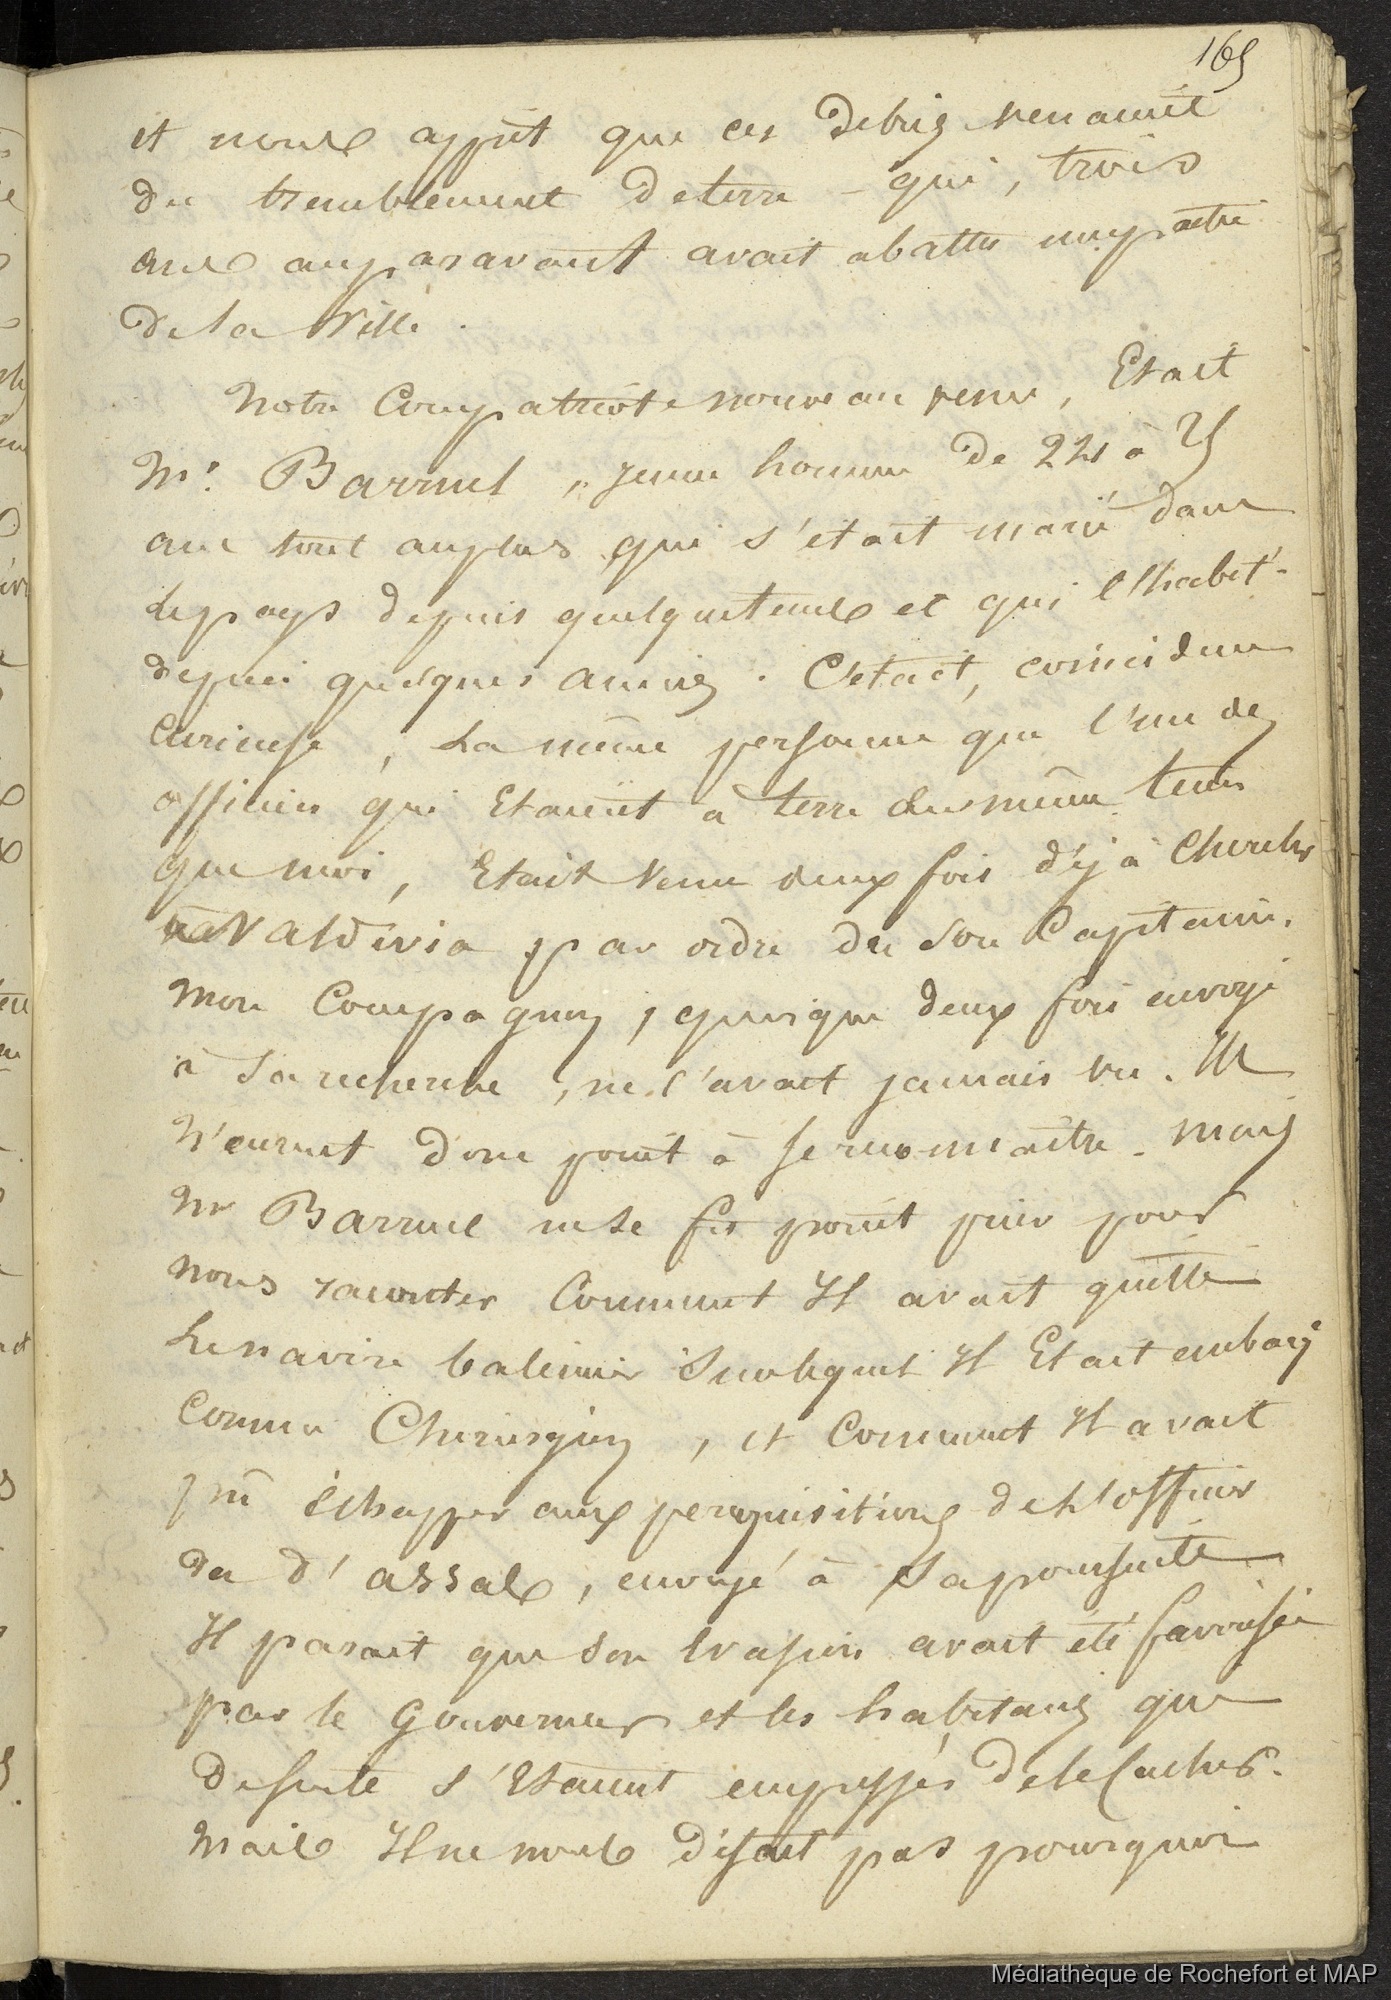 165
et nous apprit que ces debris venaient
du tremblement de terre - qui, trois
ans auparavant avait abattu une partie
de la Ville.
Notre Compatriote nouveau venu, Etait
Mr. Barruel, jeune homme de 24 à 25
ans tout au plus qui s'était marié dans
le pays depuis quelque tems et qui l'habit.
depuis quelques années. C'etait, coincidence
Curieuse, La même personne que l'un des
officiers qui Etaient à terre du même tems
que moi, Etait venu deux fois déjà Chercher
à Valdivia par ordre de son Capitaine.
Mon Compagnon, quoique deux fois envoyé
à Sa recherche, ne l'avait jamais vu. Ils
N'eurent donc point à se reconnaître. Mais
Mr Barruel ne se fit point prier pour
nous raconter Comment Il avait quitté
Le navire baleinier Sur lequel Il Etait embarq.
Comme Chirurgien, et Comment Il avait
pû échapper aux perquisitions de L'officier
de d'assas, envoyé à Sa poursuite
Il parait que son Evasion avait été favorisée
par le Gouverneur et les habitans qui
de suite s'Etaient empressés de le Cacher.
Mais Il ne nous disait pas pourquoi
Médiathèque de Rochefort et MAP